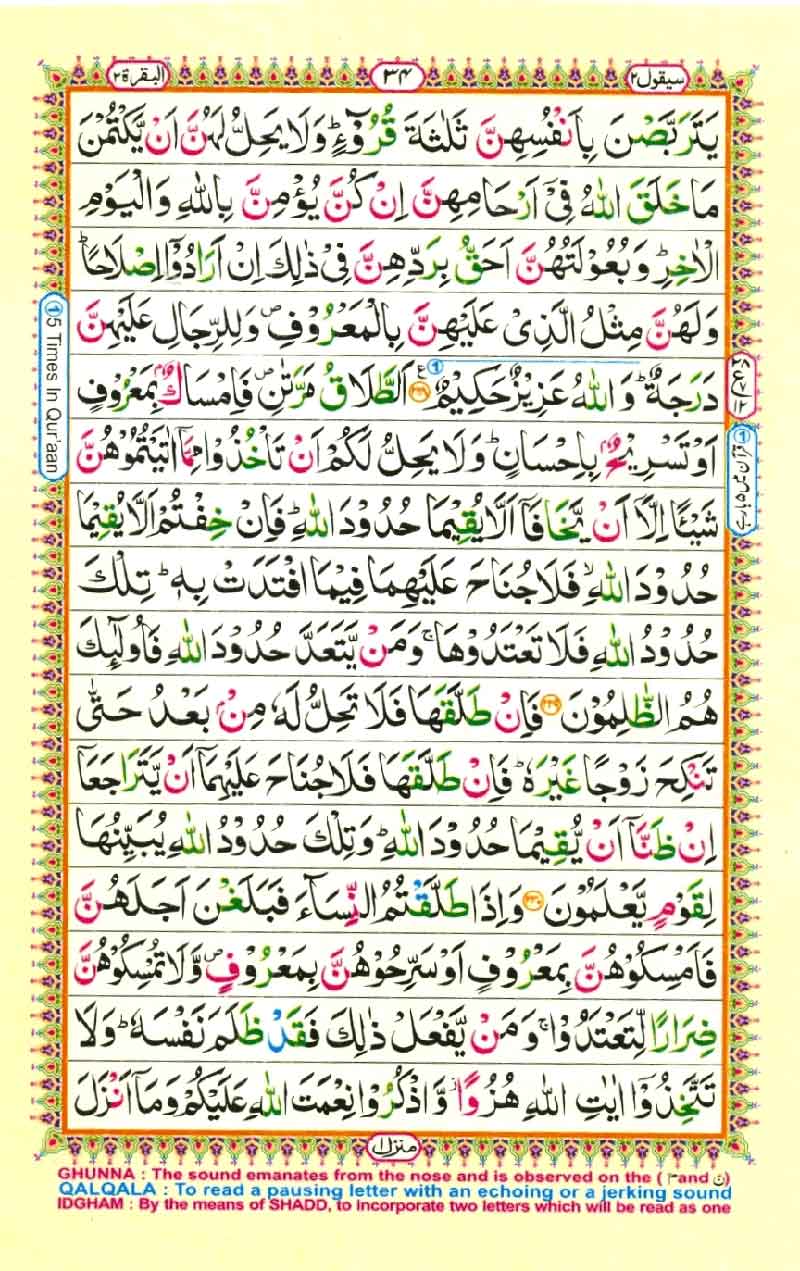 سیقول ۲
۳۴
البقرة ۲
يَتَرَبَّصْنَ بِاَنْفُسِهِنَّ ثَلٰثَةَ قُرُوْٓءٍ ؕ وَلَا يَحِلُّ لَهُنَّ اَنْ يَّكْتُمْنَ
مَا خَلَقَ اللّٰهُ فِىْٓ اَرْحَامِهِنَّ اِنْ كُنَّ يُؤْمِنَّ بِاللّٰهِ وَالْيَوْمِ
الْاٰخِرِ ؕ وَبُعُوْلَتُهُنَّ اَحَقُّ بِرَدِّهِنَّ فِىْ ذٰلِكَ اِنْ اَرَادُوْٓا اِصْلَاحًا ؕ
وَلَهُنَّ مِثْلُ الَّذِىْ عَلَيْهِنَّ بِالْمَعْرُوْفِ ۪ وَلِلرِّجَالِ عَلَيْهِنَّ
دَرَجَةٌ ؕ وَاللّٰهُ عَزِيْزٌ حَكِيْمٌ ۟﴿۲۲۸﴾ اَلطَّلَاقُ مَرَّتٰنِ ۪ فَاِمْسَاكٌۢ بِمَعْرُوْفٍ
اَوْ تَسْرِيْحٌۢ بِاِحْسَانٍ ؕ وَلَا يَحِلُّ لَكُمْ اَنْ تَاْخُذُوْا مِمَّاۤ اٰتَيْتُمُوْهُنَّ
شَيْـًٔا اِلَّاۤ اَنْ يَّخَافَاۤ اَلَّا يُقِيْمَا حُدُوْدَ اللّٰهِ ؕ فَاِنْ خِفْتُمْ اَلَّا يُقِيْمَا
حُدُوْدَ اللّٰهِ ۙ فَلَا جُنَاحَ عَلَيْهِمَا فِيْمَا افْتَدَتْ بِهٖ ؕ تِلْكَ
حُدُوْدُ اللّٰهِ فَلَا تَعْتَدُوْهَا ۚ وَمَنْ يَّتَعَدَّ حُدُوْدَ اللّٰهِ فَاُولٰٓئِكَ
هُمُ الظّٰلِمُوْنَ ﴿۲۲۹﴾ فَاِنْ طَلَّقَهَا فَلَا تَحِلُّ لَهٗ مِنْۢ بَعْدُ حَتّٰى
تَنْكِحَ زَوْجًا غَيْرَهٗ ؕ فَاِنْ طَلَّقَهَا فَلَا جُنَاحَ عَلَيْهِمَاۤ اَنْ يَّتَرَاجَعَاۤ
اِنْ ظَنَّاۤ اَنْ يُّقِيْمَا حُدُوْدَ اللّٰهِ ؕ وَتِلْكَ حُدُوْدُ اللّٰهِ يُبَيِّنُهَا
لِقَوْمٍ يَّعْلَمُوْنَ ﴿۲۳۰﴾ وَاِذَا طَلَّقْتُمُ النِّسَآءَ فَبَلَغْنَ اَجَلَهُنَّ
فَاَمْسِكُوْهُنَّ بِمَعْرُوْفٍ اَوْ سَرِّحُوْهُنَّ بِمَعْرُوْفٍ ۪ وَّلَا تُمْسِكُوْهُنَّ
ضِرَارًا لِّتَعْتَدُوْا ۚ وَمَنْ يَّفْعَلْ ذٰلِكَ فَقَدْ ظَلَمَ نَفْسَهٗ ؕ وَلَا
تَتَّخِذُوْۤا اٰيٰتِ اللّٰهِ هُزُوًا ؗ وَّاذْكُرُوْا نِعْمَتَ اللّٰهِ عَلَيْكُمْ وَمَاۤ اَنْزَلَ
منزل ۱
① قرآن میں ۵ بار ہے
① 5 Times In Qur'aan
GHUNNA : The sound emanates from the nose and is observed on the ( م and ن)
QALQALA : To read a pausing letter with an echoing or a jerking sound
IDGHAM : By the means of SHADD, to incorporate two letters which will be read as one